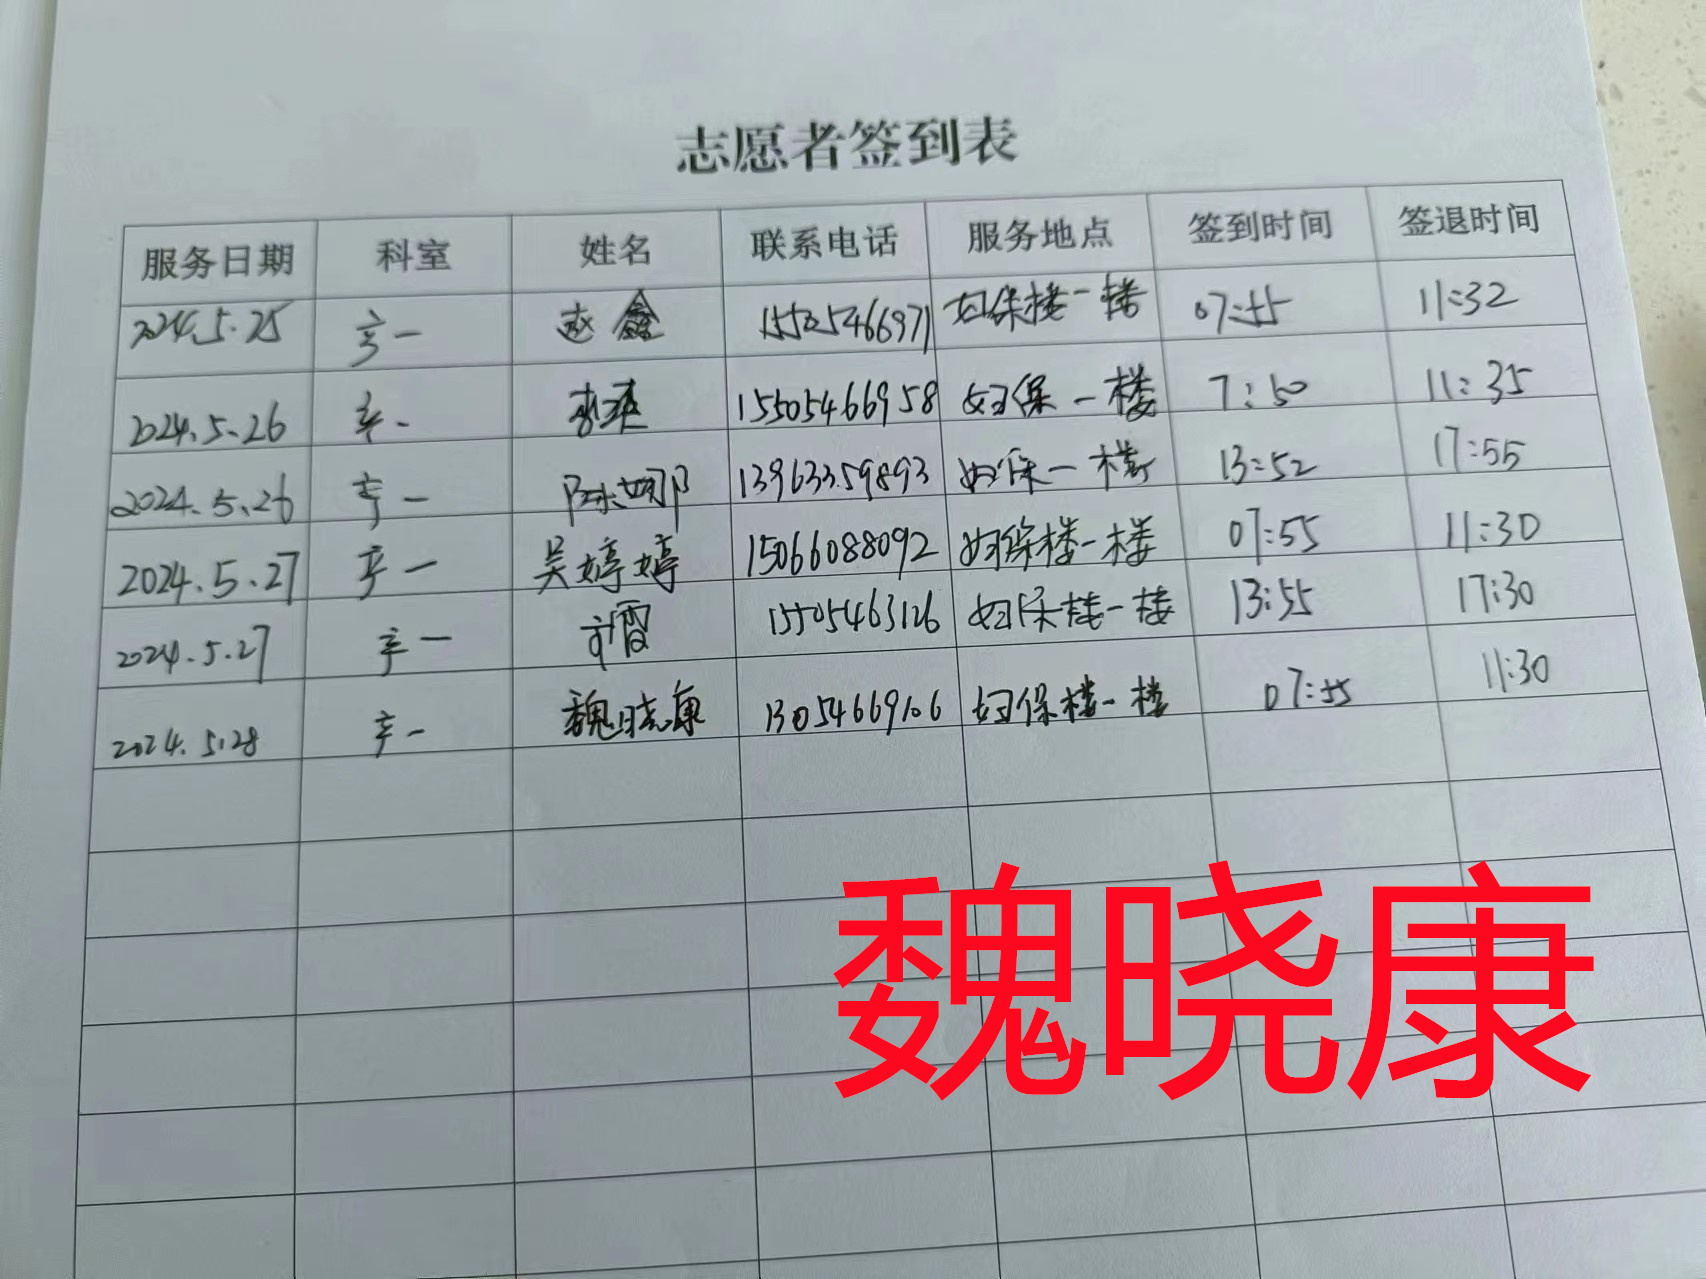 志愿者签到表
服务日期 科室 姓名 联系电话 服务地点 签到时间 签退时间
2024.5.25 产一 赵鑫 15505466971 妇保楼一楼 07:55 11:32
2024.5.26 产一 15505466958 妇保一楼 7:50 11:35
2024.5.26 产一 陈娜 13963359893 妇保一楼 13:52 17:55
2024.5.27 产一 吴婷婷 15066088092 妇保楼一楼 07:55 11:30
2024.5.27 产一 15505463126 妇保楼一楼 13:55 17:30
2024.5.28 产一 魏晓康 13054669106 妇保楼一楼 07:55 11:30
魏晓康